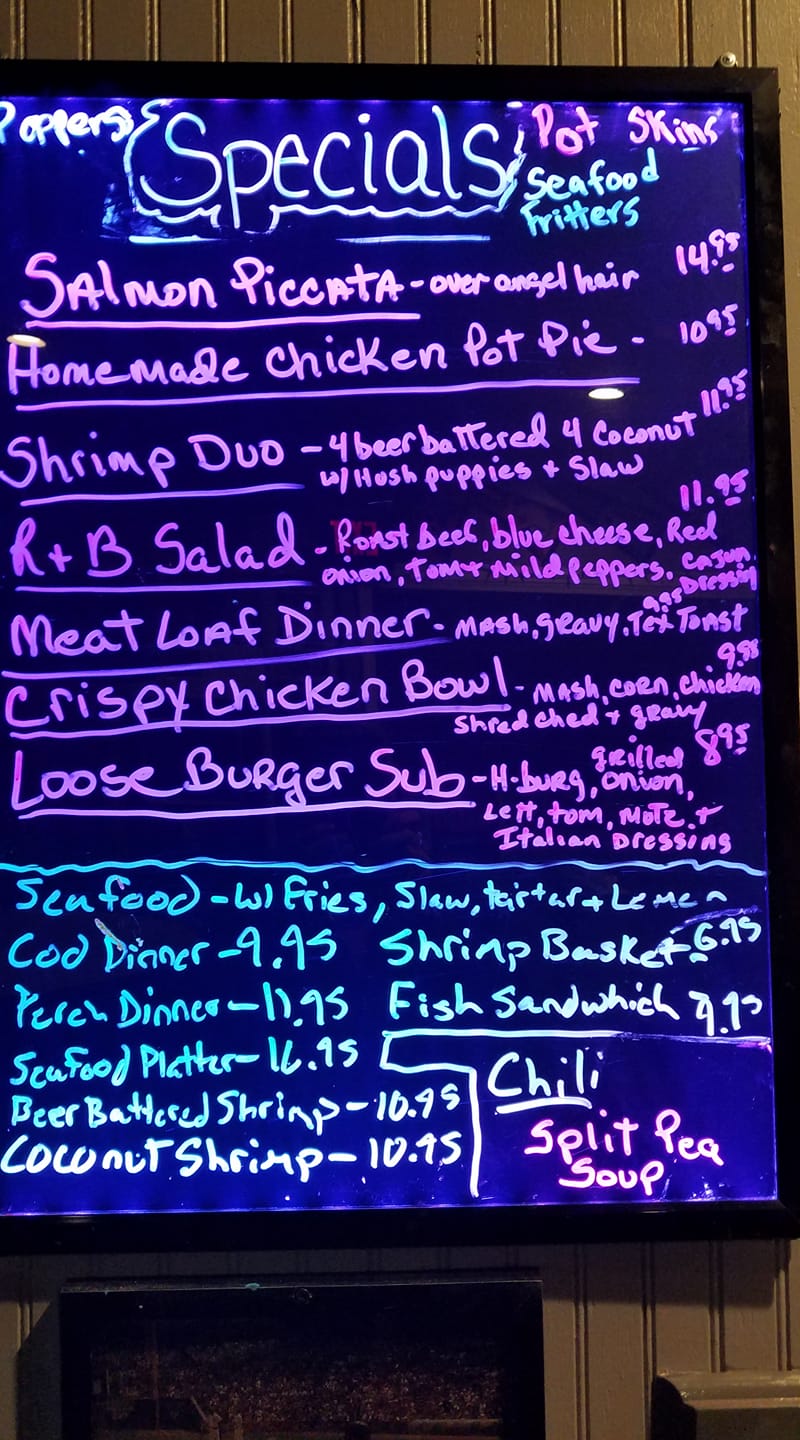 Poppers
Specials
Pot Skins
Seafood
Fritters
Salmon Piccata - over angel hair 14.95
Homemade Chicken Pot Pie - 10.95
Shrimp Duo - 4 beer battered 4 Coconut 11.95
w/ Hush puppies + Slaw
11.95
R+B Salad - Roast Beef, blue cheese, Red
onion, Tom + Mild Peppers. Cajun
Dressing
9.95
Meat Loaf Dinner - Mash, gravy, Tex Toast
9.95
Crispy Chicken Bowl - Mash, corn, chicken
Shredched + gravy
Loose Burger Sub - H-burg, grilled onion, 8.95
Lett, tom, Motz. +
Italian Dressing
Seafood - w/ Fries, Slaw, tartar + Lemon
Cod Dinner - 9.95 Shrimp Basket - 6.95
Perch Dinner - 11.95 Fish Sandwhich 9.95
Seafood Platter - 16.95
Beer Battered Shrimp - 10.95
Coconut Shrimp - 10.95
Chili
Split Pea
Soup